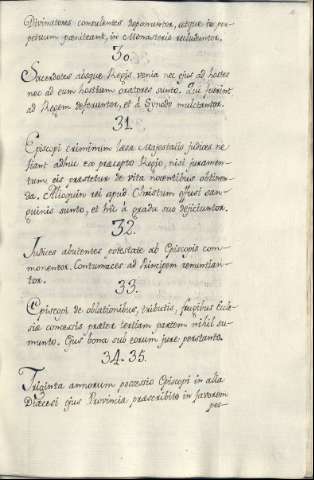 Divinatores consulentes deponuntur, utque in per-
petuum pœniteant, in Monasterio recluduntor.
30.
Sacerdotes absque Regis venia nec ejus ad hostes
nec ad eum hostium oratores sunto. Qui fecerint
ad Regem deferuntor, et à Synodo mulctantor.
31.
Episcopi criminum læsæ Majestatis judices ne
fiant adhuc ex præcepto Regio, nisi juramen-
tum eis præstetur de vita nocentibus obtinen-
da. Alioquin rei apud Christum effusi san-
guinis sunto, et hìc à gradu suo dejiciuntor.
32.
Judices abutentes potestate ab Episcopis com-
monentor. Contumaces ad Principem renuntian-
tor.
33.
Episcopi de oblationibus, tributis, frugibus Eccle-
siæ concessis præter tertiam partem nihil su-
munto. Ejus bona sub eorum jure perstanto.
34-35.
Triginta annorum possessio Episcopi in alia
Diœcesi ejus Provinciæ præscribito in favorem
pos-